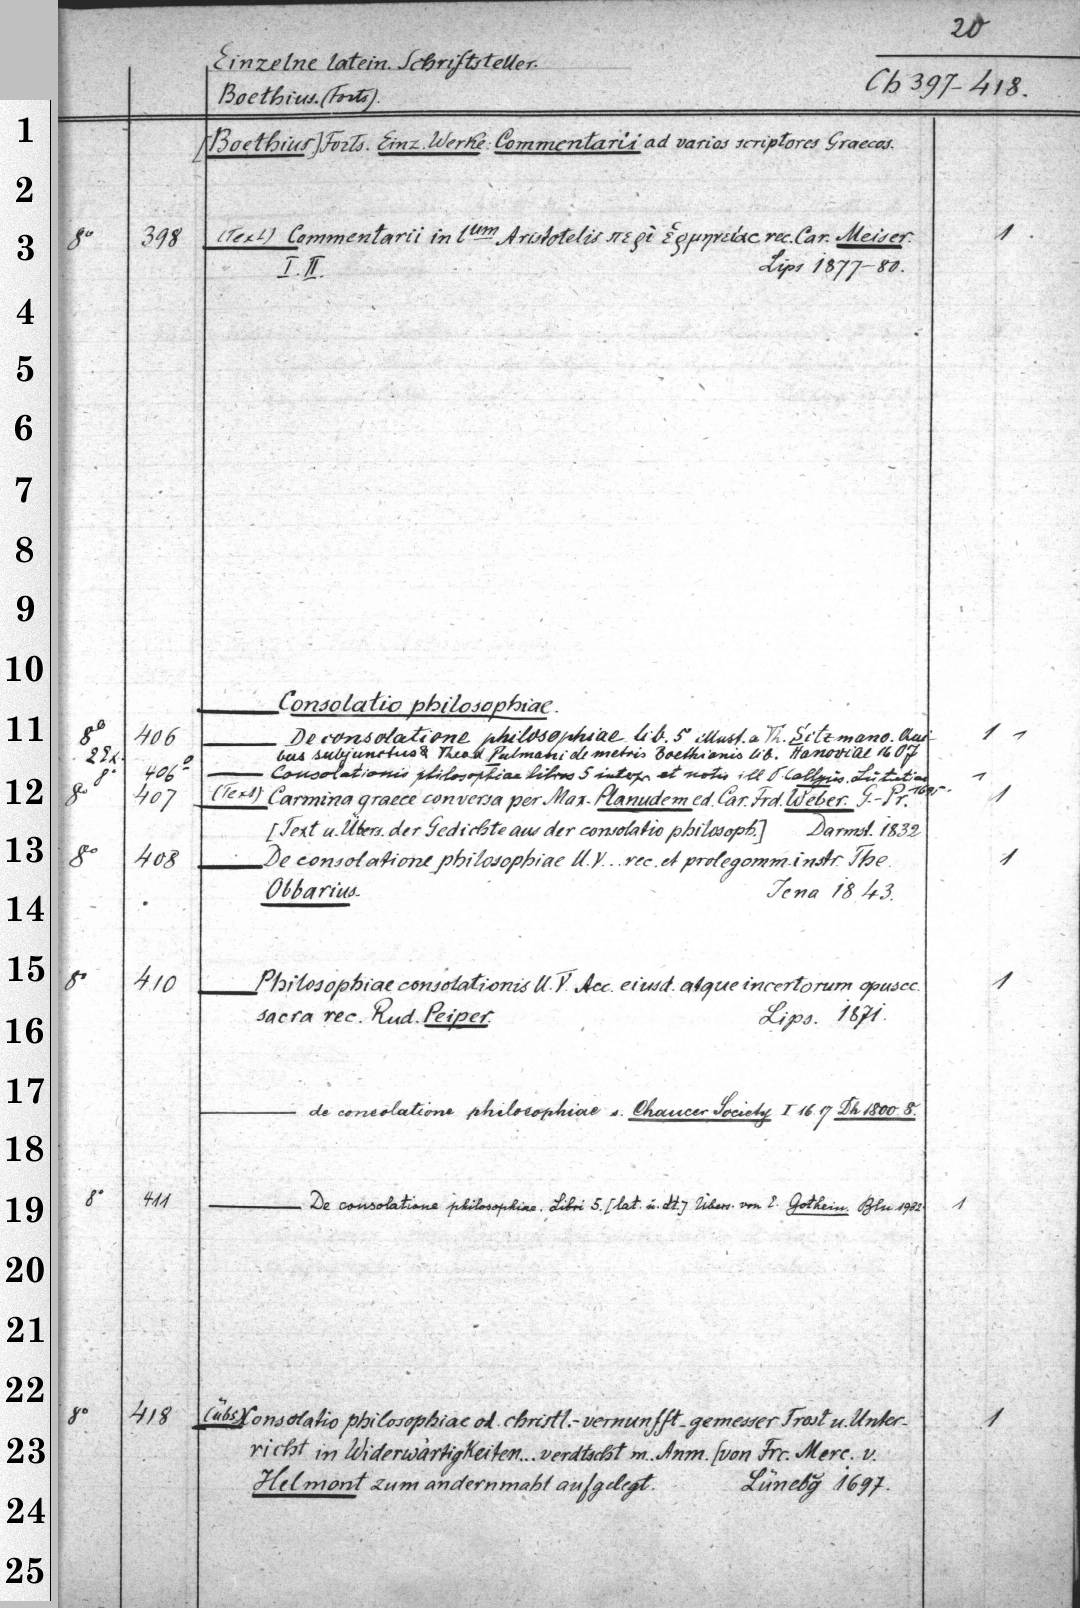 20
Einzelne latein. Schriftsteller.
Boethius. (Forts).
Ch 397-418.
1
[Boethius] Forts. Einz. Werke: Commentarii ad varios scriptores Graecos.
2
3
8° 398 (Text) Commentarii in l um Aristotelis περὶ ἑρμηνείας rec. Car. Meiser. 1
I. II. Lips 1877-80.
4
5
6
7
8
9
10
Consolatio philosophiae.
11
8° 406 De consolatione philosophiae lib. 5 illust. a Th. Sitzmano. Qui- 1
bus subjunctus Theod. Pulmani de metris Boethianis lib. Hanoviae 1607
8° 406 a Consolationis philosophiae libros 5 interpr. et notis ill P. Callyus. Lutetiae 1695. 1
12
8° 407 (Text) Carmina graece conversa per Max. Planudem ed. Car. Frd. Weber. G.-Pr. 1
[Text u. Übers. der Gedichte aus der consolatio philosoph.] Darmst. 1832
13
8° 408 De consolatione philosophiae ll. V... rec. et prolegomm. instr. The. 1
14
Obbarius. Jena 1843.
15
8° 410 Philosophiae consolationis ll. V. Acc. eiusd. atque incertorum opuscc. 1
16
sacra rec. Rud. Peiper. Lips. 1871.
17
de consolatione philosophiae s. Chaucer Society I 16. 17 Dh 1800 8°.
18
19
8° 411 De consolatione philosophiae. Libri 5. [lat. u. dt.] Übers. von E. Gothein. Bln 1932. 1
20
21
22
8° 418 (übs) Consolatio philosophiae od. christl.-vernunfft-gemesser Trost u. Unter- 1
23
richt in Widerwärtigkeiten... verdtscht m. Anm. [von Frc. Merc. v.
Helmont zum andernmahl aufgelegt. Lünebg 1697.
24
25